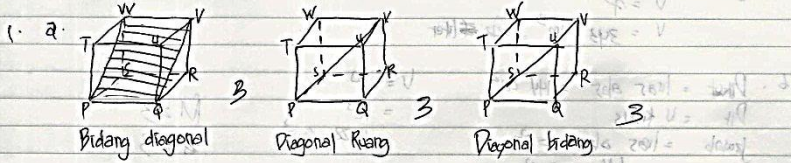 1. a.
W V
T U
S R
P Q
3
Bidang diagonal
W V
T U
S R
P Q
3
Diagonal Ruang
W V
T U
S R
P Q
3
Diagonal bidang